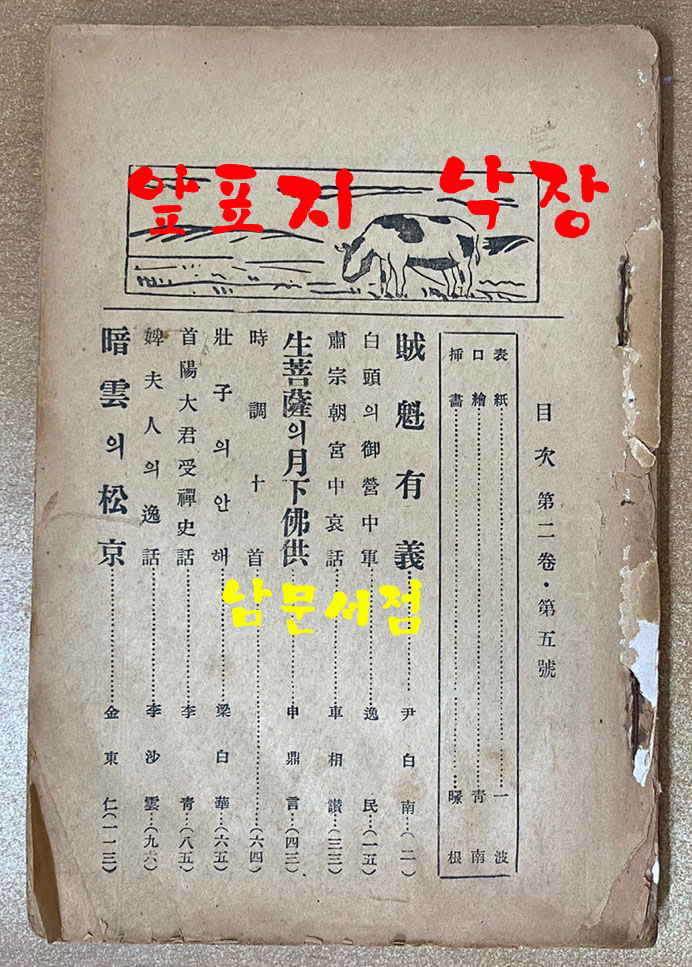 앞표지 낙장
目次 第二卷・第五號
表紙……一波
口繪……青南
挿畵……曔根
賊魁有義……尹白南…(二)
白頭의御營中軍……逸民…(一五)
肅宗朝宮中哀話……車相讚…(三三)
生菩薩의月下佛供……申鼎言…(四三)
時調十首……(六四)
壯子의안해……梁白華…(六五)
首陽大君受禪史話……李靑…(八五)
婢夫人의逸話……李沙雲…(九六)
暗雲의松京……金東仁(一一三)
남문서점